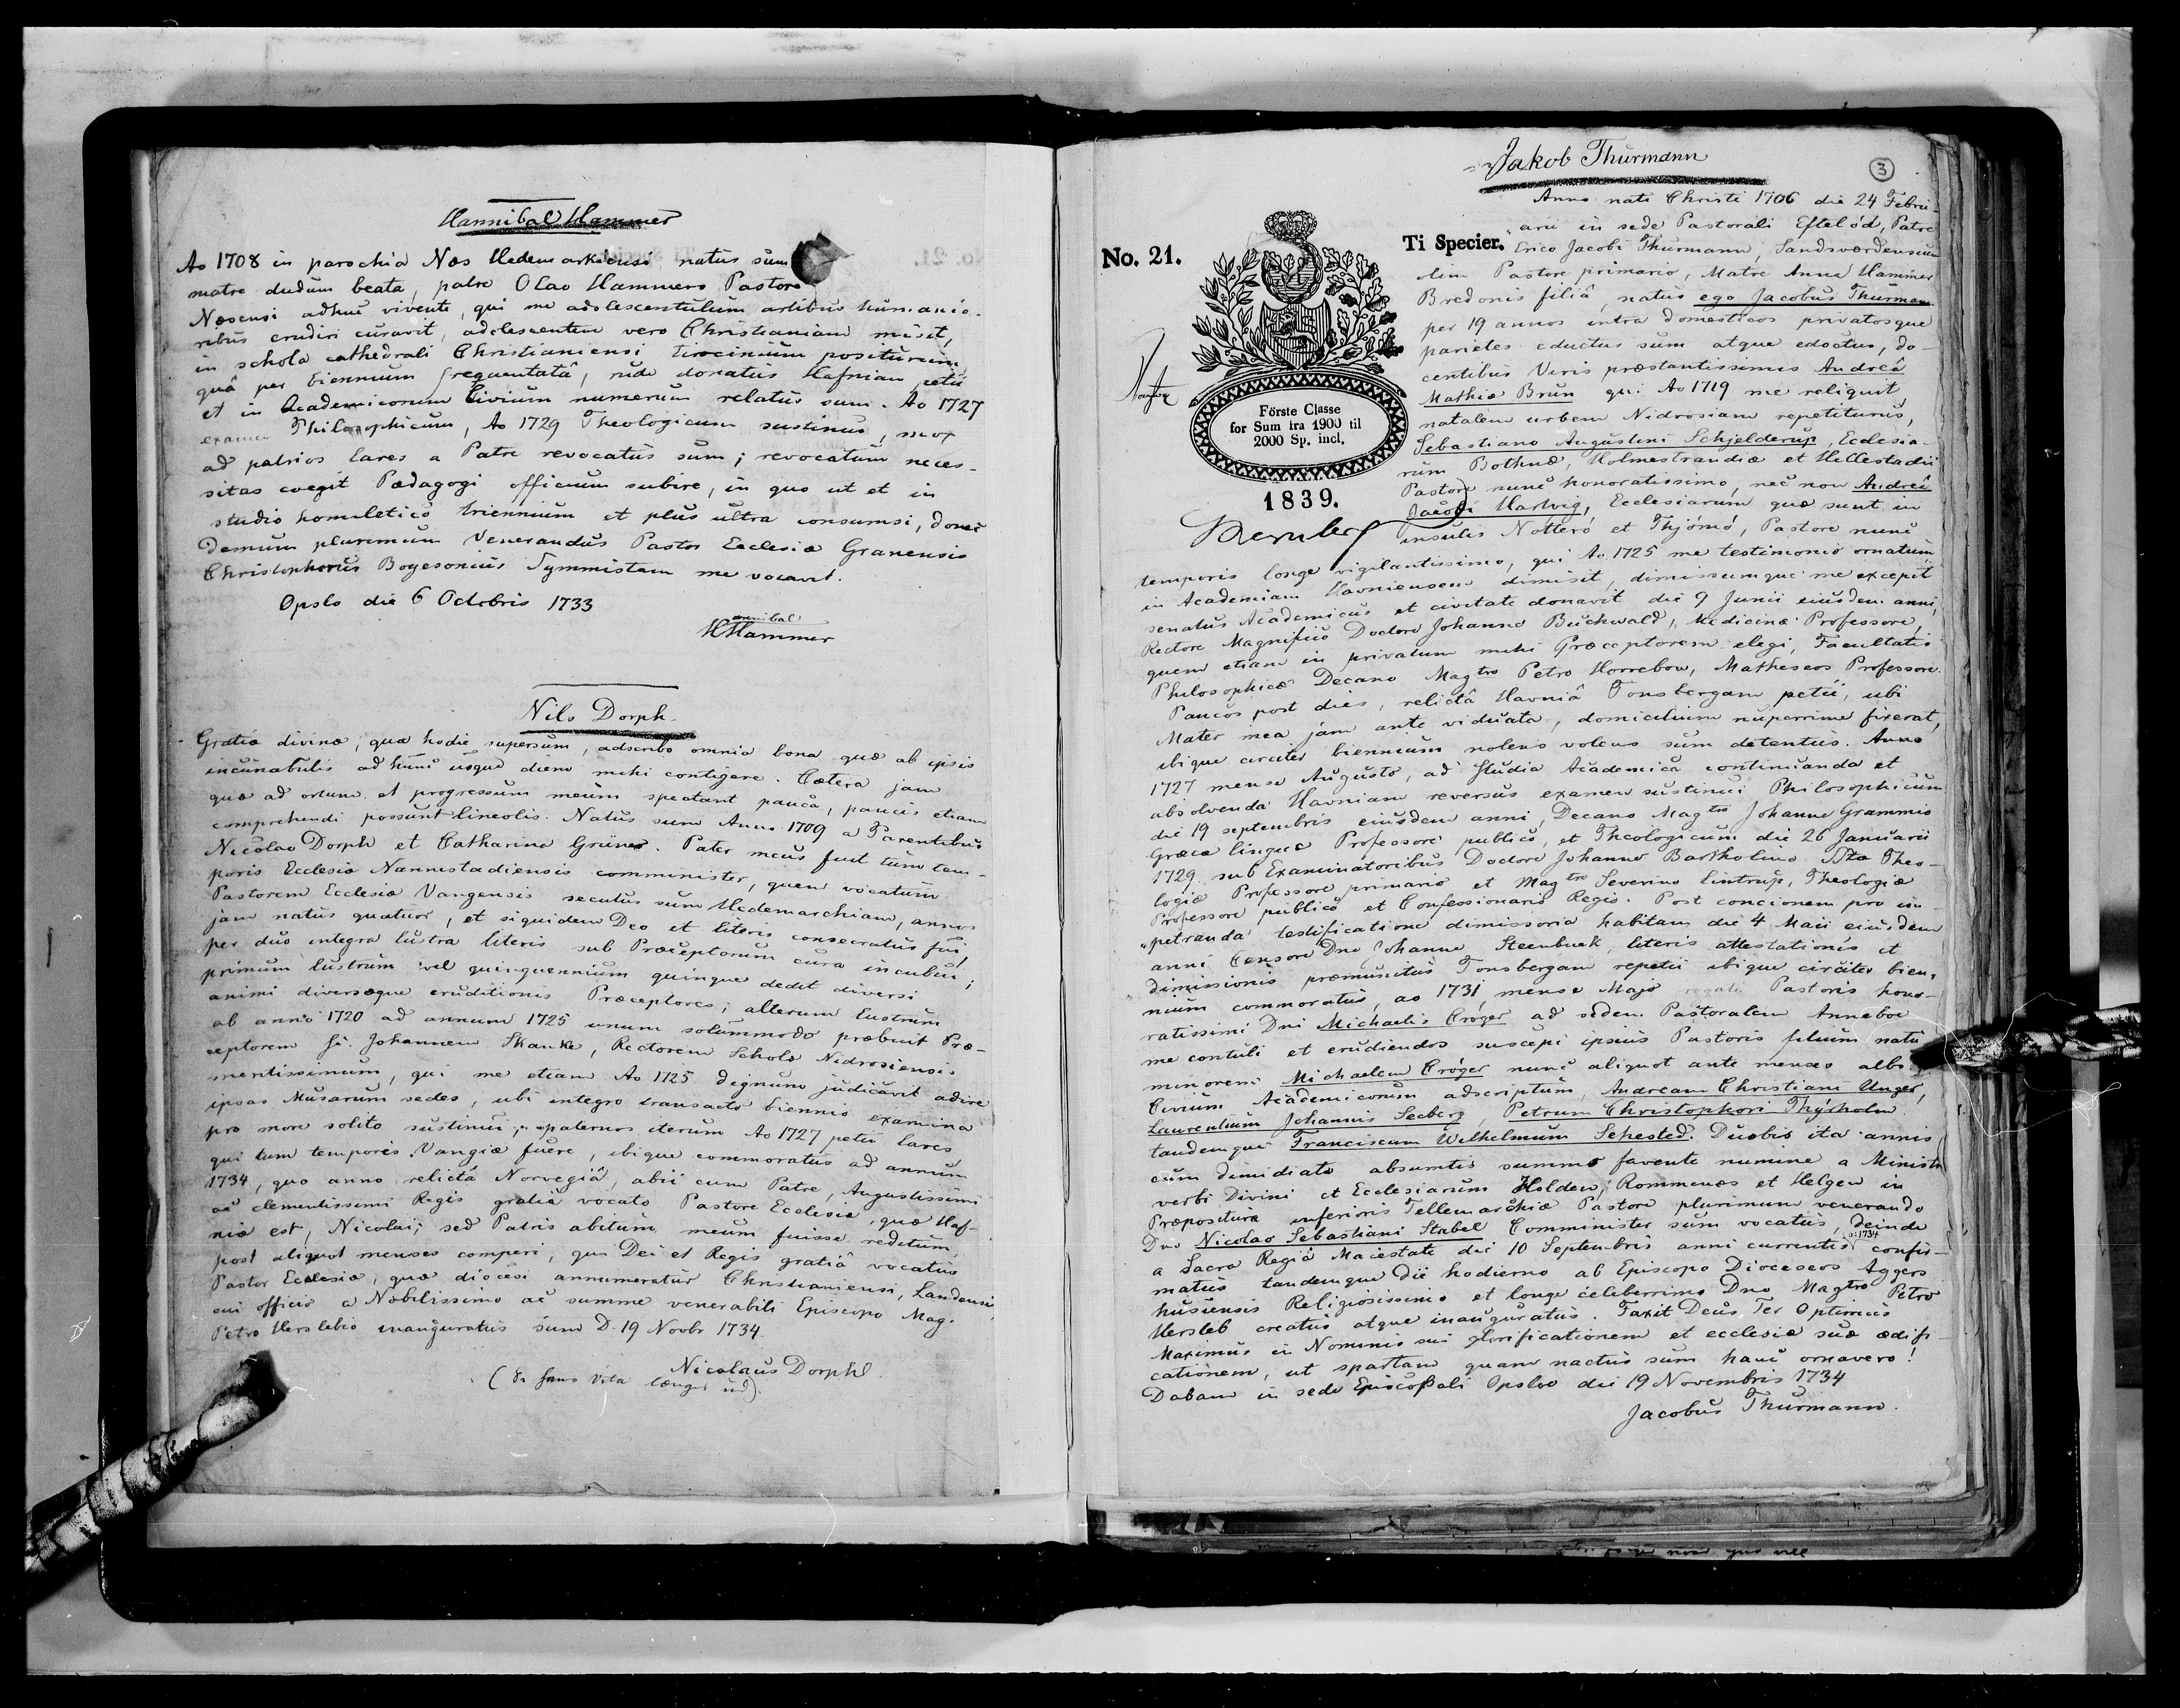 Hannibal Hammer
Ao 1708 in parochia Næs Hedemarkiensi natus sum
matre dudum beata, patre Olao Hammero Pastore
Næsensi adhuc vivente, qui me adolescentulum artibus humanio-
ribus erudiri curavit, adolescentem vero Christianiam misit,
in schola cathedrali Christianiensi tirocinium positurum
quâ per biennium frequentatâ, rude donatus Hafniam petii
et in Academicorum Civium numerum relatus sum. Ao 1727
examen Philosophicum, Ao 1729 Theologicum sustinui, mox
ad patrios Lares a Patre revocatus sum; revocatum neces-
sitas coegit Pædagogi officium subire, in quo ut et in
studio homiletico triennium et plus ultra consumsi, donec
demum plurimum Venerandus Pastor Ecclesiæ Granensis
Christophorus Boyesonius Symmistam me vocavit.
Opslo die 6 Octobris 1733
annibal
HHammer
Nils Dorph
Gratiæ divinæ, qua hodie supersum, adscribo omnia bona quæ ab ipsis
incunabulis ad hunc usque diem mihi contigere. Cætera jam
quæ ad ortum et progressum meum spectant pauca, paucis etiam
comprehendi possunt lineolis. Natus sum Anno 1709 a Parentibus
Nicolao Dorph et Catharina Grüner. Pater meus fuit tum tem-
poris Ecclesiæ Nannestadiensis comminister, quem vocatum
Pastorem Ecclesiæ Vangensis secutus sum Hedemarchiam, annos
jam natus quatuor, et siquidem Deo et literis consecratus fui,
per duo integra lustra literis sub Præceptorum cura incubui;
primum lustrum vel quinquennium quinque dedit diversi
animi diversæque eruditionis Præceptores; alterum lustrum
ab anno 1720 ad annum 1725 unum solummodo præbuit Præ-
ceptorem Johannem Skanke, Rectorem Scholæ Nidrosiensis
meritissimum, qui me etiam Ao 1725 dignum judicavit adire
ipsas Musarum sedes, ubi integro transacto biennio examina
pro more solito sustinui; paternos iterum Ao 1727 petii lares
qui tum temporis Vangiæ fuere, ibique commoratus ad annum
1734, quo anno, relictâ Norvegiâ, abii cum Patre, Augustissimi
ac clementissimi Regis gratiâ vocato Pastore Ecclesiæ, quæ Haf-
niæ est, Nicolai; sed Patris abitum meum fuisse reditum,
post aliquot menses comperi, qui Dei et Regis gratiâ vocatus
Pastor Ecclesiæ, quæ diocesi annumeratur Christianiensi, Landensi,
cui officio a Nobilissimo ac summe venerabili Episcopo Mag.
Petro Herslebio inauguratus sum D. 19 Novbr 1734.
Nicolaus Dorph
Vita længer ud)
Jakob Thurmann
3
No. 21.
Ti Specier.
Förste Classe
for Sum fra 1900 til
2000 Sp. incl.
1839.
Anno nati Christi 1706 die 24 Febru-
arii in sede Pastorali Eftelöd, Patre
Erico Jacobi Thurmann, Sandsværdensium
olim Pastore primario, Matre Anna Hammer
Bredonis filiâ, natus ego Jacobus Thurmann
per 19 annos intra domesticos privatosque
parietes eductus sum atque edoctus, do-
centibus Viris præstantissimis Andreâ
Mathiæ Brun qui Ao 1719 me reliquit,
natalem urbem Nidrosiam repetiturus,
Sebastiano Augustini Schjelderup, Ecclesia-
rum Bothnæ, Holmestrandiæ et Hellestadii
Pastore nunc honoratissimo, nec non Andreâ
Jacobi Hartvig, Ecclesiarum quæ sunt in
insulis Notterö et Thjömö, Pastore nunc
temporis longe vigilantissimo, qui Ao 1725 me testimonio ornatum
in Academiam Havniensem dimisit, dimissumque me excepit
senatus Academicus et civitate donavit die 9 Junii eiusdem anni,
Rectore Magnifico Doctore Johanne Buchwald, Medicinæ Professore,
quem etiam in privatum mihi Præceptorem elegi, Facultatis
Philosophicæ Decano Magtro Petro Horrebow, Matheseos Professore.
Paucos post dies, relictâ Havniâ Tonsbergam petii, ubi
Mater mea jam ante viduata, domicilium nuperrime fixerat,
ibique circiter biennium nolens volens sum detentus. Anno
1727 mense Augusto, ad studia Academica continuanda et
absolvenda Havniam reversus examen sustinui Philosophicum
die 19 septembris eiusdem anni, Decano Magtro Johanne Grammio
Græcæ linguæ Professore publico, et Theologicum die 26 Januarii
1729 sub Examinatoribus Doctore Johanne Bartholino Theo-
logiæ Professore primario et Magtro Severino Lintrup, Theologiæ
Professore publico et Confessionario Regio. Post concionem pro im-
petranda testificatione dimissoria habitam die 4 Maii eiusdem
anni Censore Dno Johanne Steenbuck, literis attestationis et
dimissionis præmunitus Tonsbergam repetii ibique circiter bien-
nium commoratus, ao 1731 mense Majo rogatu Pastoris hono-
ratissimi Dni Michaelis Cröger ad sedem Pastoralem Anneboe
me contuli et erudiendos suscepi ipsius Pastoris filium natu
minorem Michaelem Cröger nunc aliquot ante menses albo
Civium Academicorum adscriptum, Andream Christiani Unger,
Laurentium Johannis Seeberg, Petrum Christophori Thyrholm
tandemque Franciscum Wilhelmum Sehested. Duobis ita annis
cum dimidiato absumtis summo favente numine a Ministro
verbi Divini et Ecclesiarum Holden, Rommenæs et Helgen in
Præpositura inferioris Tellemarchiæ Pastore plurimum venerando
Dno Nicolao Sebastiani Stabel Comminister sum vocatus, deinde
a Sacra Regiâ Maiestate die 10 Septembris anni currentis confir-
o: 1734
matus tandemque die hodierno ab Episcopo Dioceseos Aggers
husiensis Religiosissimo et longe celeberrimo Dno Magtro Petro
Hersleb creatus atque inauguratus. Faxit Deus Ter Optimus
Maximus in Nominis sui glorificationem et ecclesiæ suæ ædifi-
cationem, ut spartam quam nactus sum hanc ornavero!
Dabam in sede Episcopali Opsloe die 19 Novembris 1734
Jacobus Thurmann.